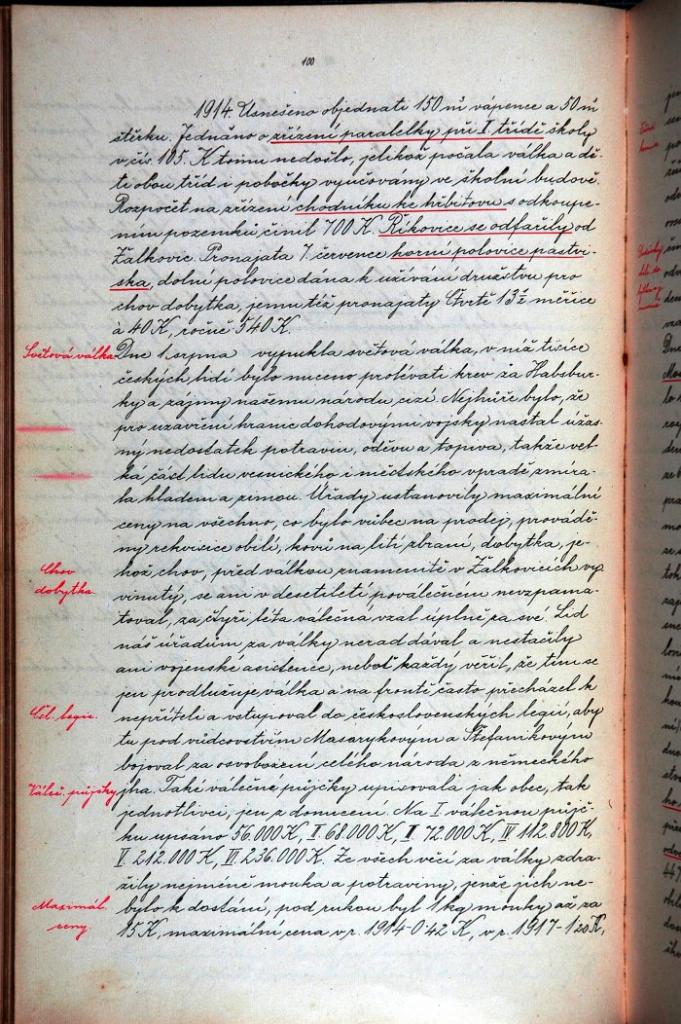 100
1914. Usnešeno objednati 150 m³ vápence a 50 m³
štěrku. Jednáno o zřízení paralelky při I. třídě školy
v čís. 105. K tomu nedošlo, jelikož počala válka a dě-
ti obou tříd i pobočky vyučovány ve školní budově.
Rozpočet na zřízení chodníku ke hřbitovu s odkoupe-
ním pozemků činil 700 K. Říkovice se odfařily od
Žalkovic. Pronajata 7. července horní polovice pastvi-
ska, dolní polovice dána k užívání družstvu pro
chov dobytka, jemu též pronajaty Čtvrtě 13½ měřice
à 40 K, ročně 540 K.
Světová válka Dne 1. srpna vypukla světová válka, v níž tisíce
českých lidí bylo nuceno prolévati krev za Habsbur-
ky a zájmy našemu národu cizí. Nejhůře bylo, že
pro uzavření hranic dohodovými vojsky nastal úžas-
ný nedostatek potravin, oděvu a topiva, takže vel-
ká část lidu vesnického i městského vpravdě zmíra-
la hladem a zimou. Úřady ustanovily maximální
ceny na všechno, co bylo vůbec na prodej, prováde-
ny rekvisice obilí, kovů na lití zbraní, dobytka, je-
Chov
hož chov, před válkou znamenitě v Žalkovicích vy-
dobytka.
vinutý, se ani v desetiletí poválečném nevzpama-
toval, za čtyři léta válečná vzal úplně za své. Lid
náš úřadům za války nerad dával a nestačily
ani vojenské asistence, neboť každý věřil, že tím se
jen prodlužuje válka a na frontě často přecházel k
Čsl. legie. nepříteli a vstupoval do československých legií, aby
tu pod vůdcovstvím Masarykovým a Štefanikovým
bojoval za osvobození celého národa z německého
Váleč. půjčky jha. Také válečné půjčky upisovala jak obec, tak
jednotlivci, jen z donucení. Na I. válečnou půjč-
ku upsáno 56.000 K, II. 68.000 K, III. 72.000 K, IV. 112.800 K,
V. 212.000 K, VI. 236.000 K. Ze všech věcí za války zdra-
žily nejméně mouka a potraviny, jenže jich ne-
Maximál. bylo k dostání, pod rukou byl 1 kg mouky až za
ceny.
15 K, maximální cena v r. 1914 - 0·42 K, v r. 1917 - 1·20 K,